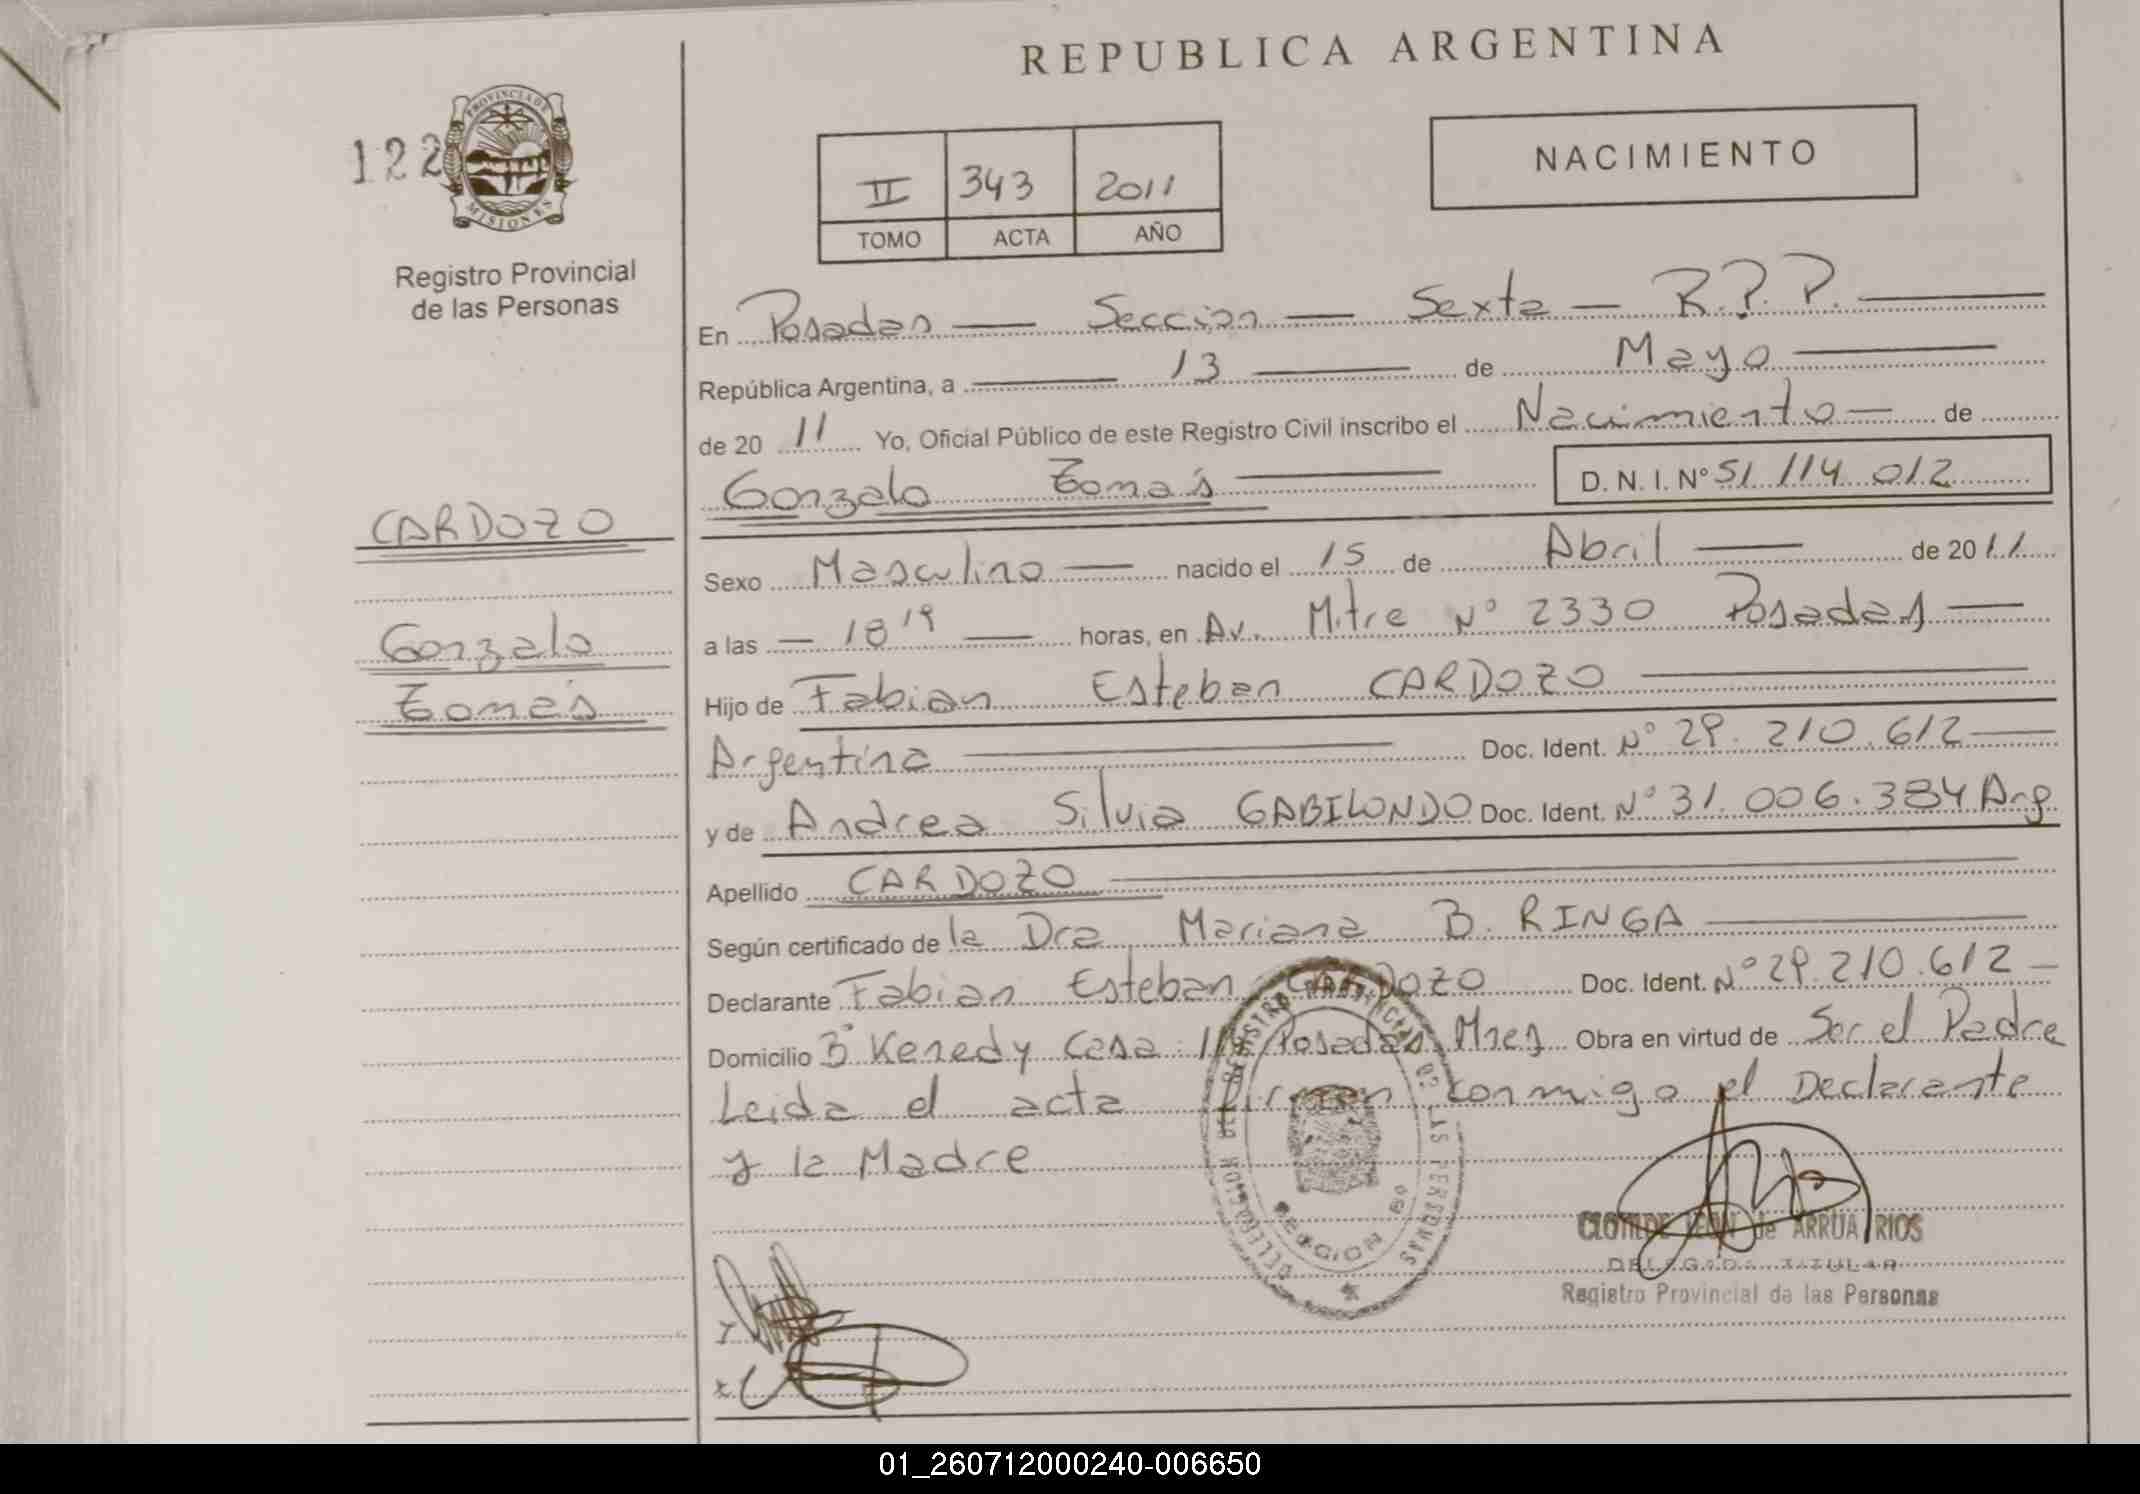 REPUBLICA ARGENTINA
122
PROVINCIA DE
MISIONES
Registro Provincial
de las Personas
II 343 2011
TOMO ACTA AÑO
NACIMIENTO
En Posadas — Seccion — Sexta — R.P.P. —
República Argentina, a — 13 — de Mayo —
de 20 11 Yo, Oficial Público de este Registro Civil inscribo el Nacimiento — de
Gonzalo Tomás — D. N. I. Nº 51 114 012
CARDOZO
Gonzalo
Tomás
Sexo Masculino — nacido el 15 de Abril — de 20 11
a las — 18 19 — horas, en Av. Mitre Nº 2330 Posadas —
Hijo de Fabian Esteban CARDOZO —
Argentina — Doc. Ident. Nº 29.210.612 —
y de Andrea Silvia GABILONDO Doc. Ident. Nº 31.006.384 Arg.
Apellido CARDOZO —
Según certificado de la Dra Mariana B. RINGA —
Declarante Fabian Esteban CARDOZO Doc. Ident. Nº 29.210.612 —
Domicilio Bº Kenedy Casa Posadas Mnes Obra en virtud de Ser el Padre
Leida el acta Firman conmigo el Declarante
y la Madre
REGISTRO PROVINCIAL DE LAS PERSONAS
CLOTILDE LEON de ARRUA RIOS
DELEGADA TITULAR
Registro Provincial de las Personas
01_260712000240-006650